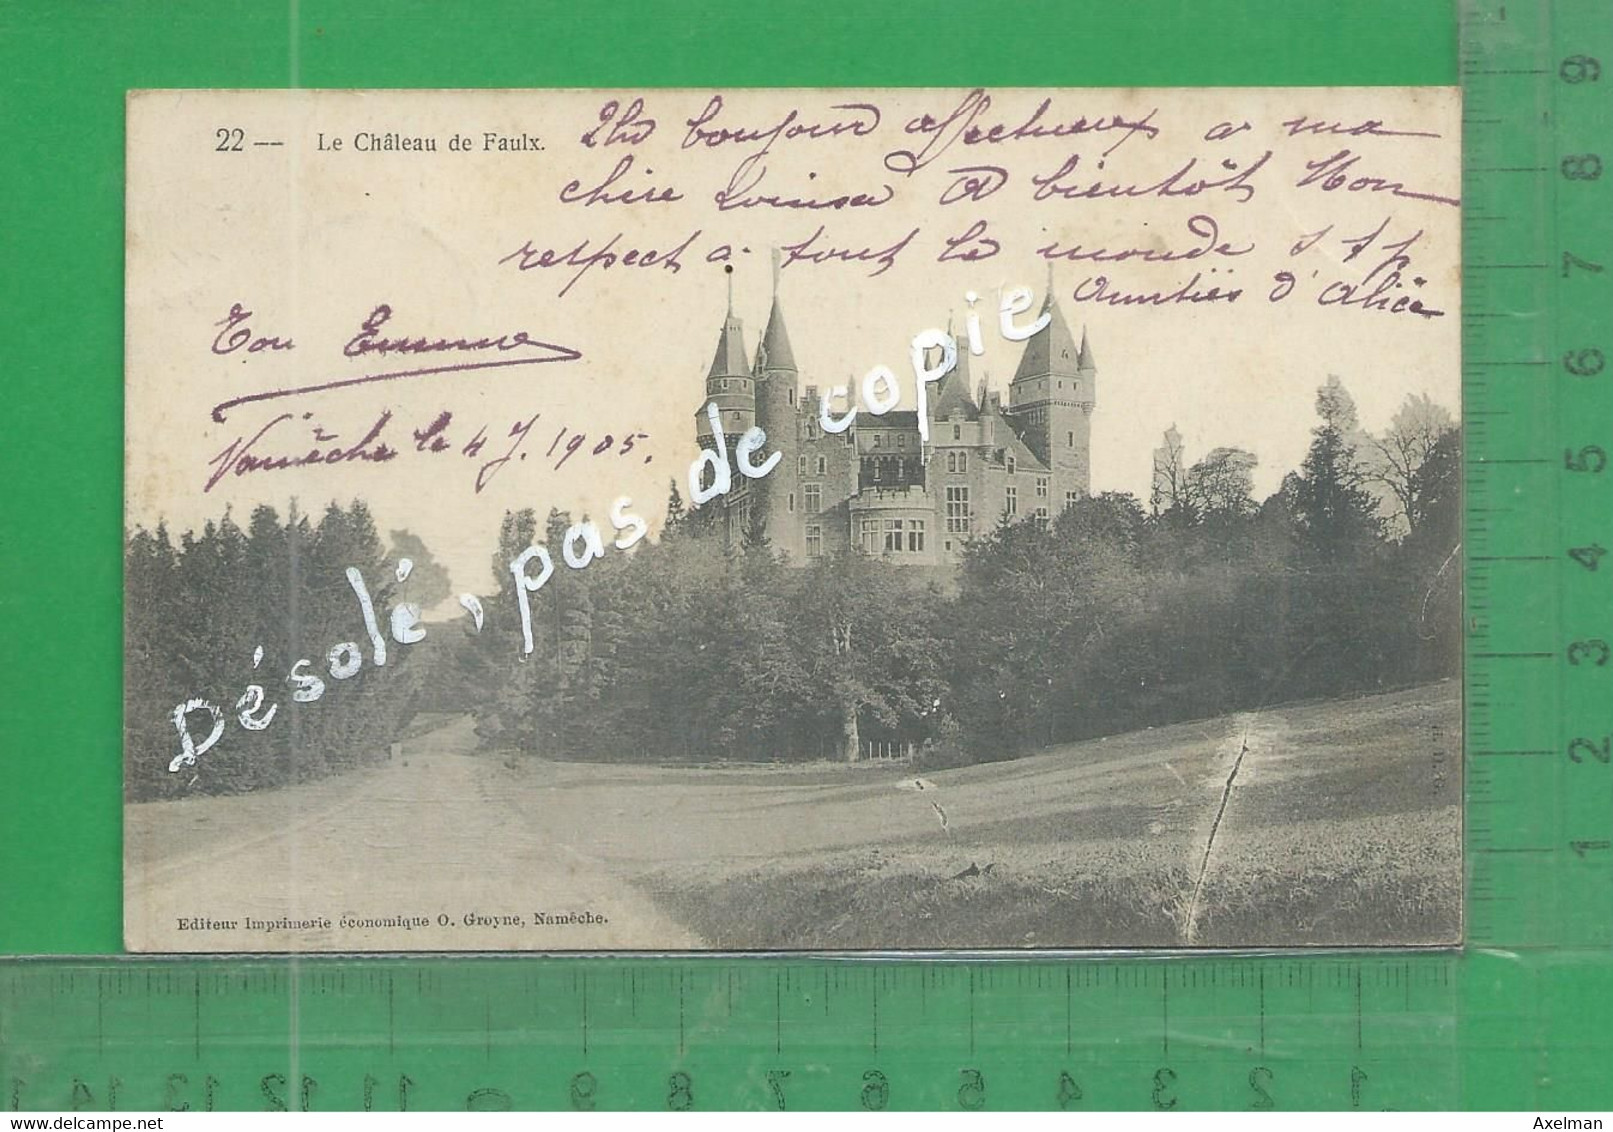 22 — Le Château de Faulx.
bonjour affectueux a ma
chère Louisa a bientôt Mon
respect a tout le monde s t p
Amitiés d'Alice
Ton Emma
Namêche le 4 J. 1905.
Désolé, pas de copie
Editeur Imprimerie économique O. Groyne, Namêche.
9
8
7
6
5
4
3
2
1
14 13 12 11 9 8 7 6 5 4 3 2 1
www.delcampe.net
Axelman